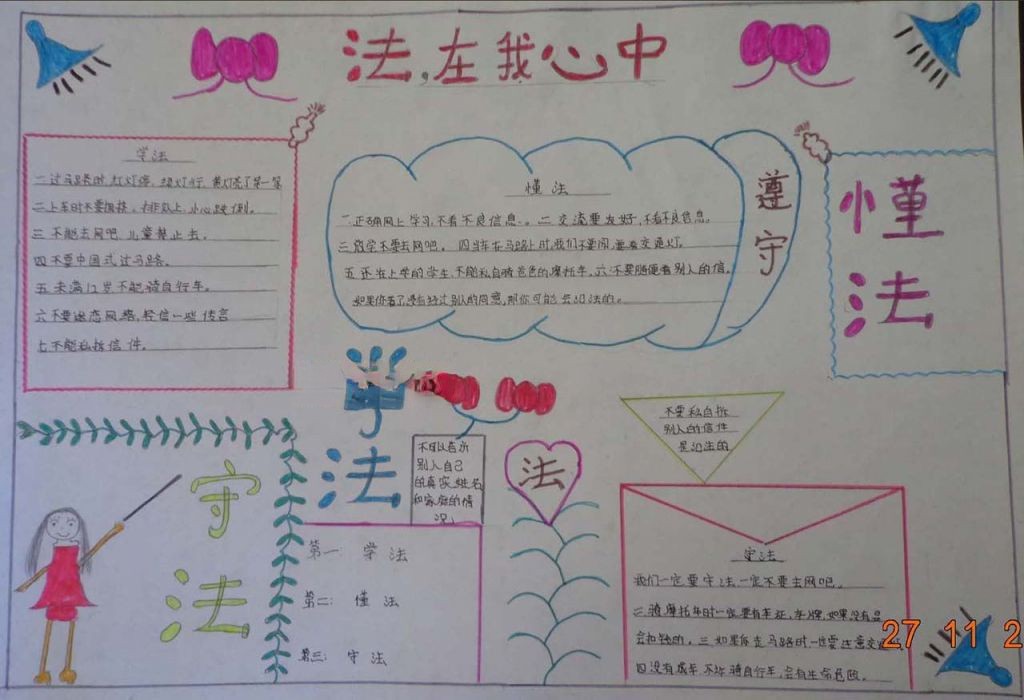 法,在我心中
学法
一过马路时,红灯停,绿灯行,黄灯亮了等一等
二上车时不要拥挤,
三不能去网吧儿童禁止去。
四不要中国式过马路。
五未满12岁不能骑自行车。
六不要迷恋网络,轻信一些传言
七不能私拆信件。
懂法
一.正确网上学习,不看不良信息。二交流要友好,不看不良信息。
三放学不要去网吧。四当车在马路上时,我们不要闯,要看交通灯。
五还在上学的学生,不能私自骑爸爸的摩托车。六不要随便看别人的信。
如果你看了没有经过别人的同意,那你可能会犯法的。
遵守
懂法
学法
不可以告诉
别人自己
的真实姓名
和家庭的情
况。
法
不要私自拆
别人的信件
是犯法的
守法
第一 学法
第二: 懂法
第三: 守法
守法
我们一定要守法一定不要去网吧。
二骑摩托车时一定要有车证,车牌,如果没有是
会扣钱的。三如果你走马路时一定要注意交通
四没有成年不许骑自行车,会有生命危险。
27 11 2